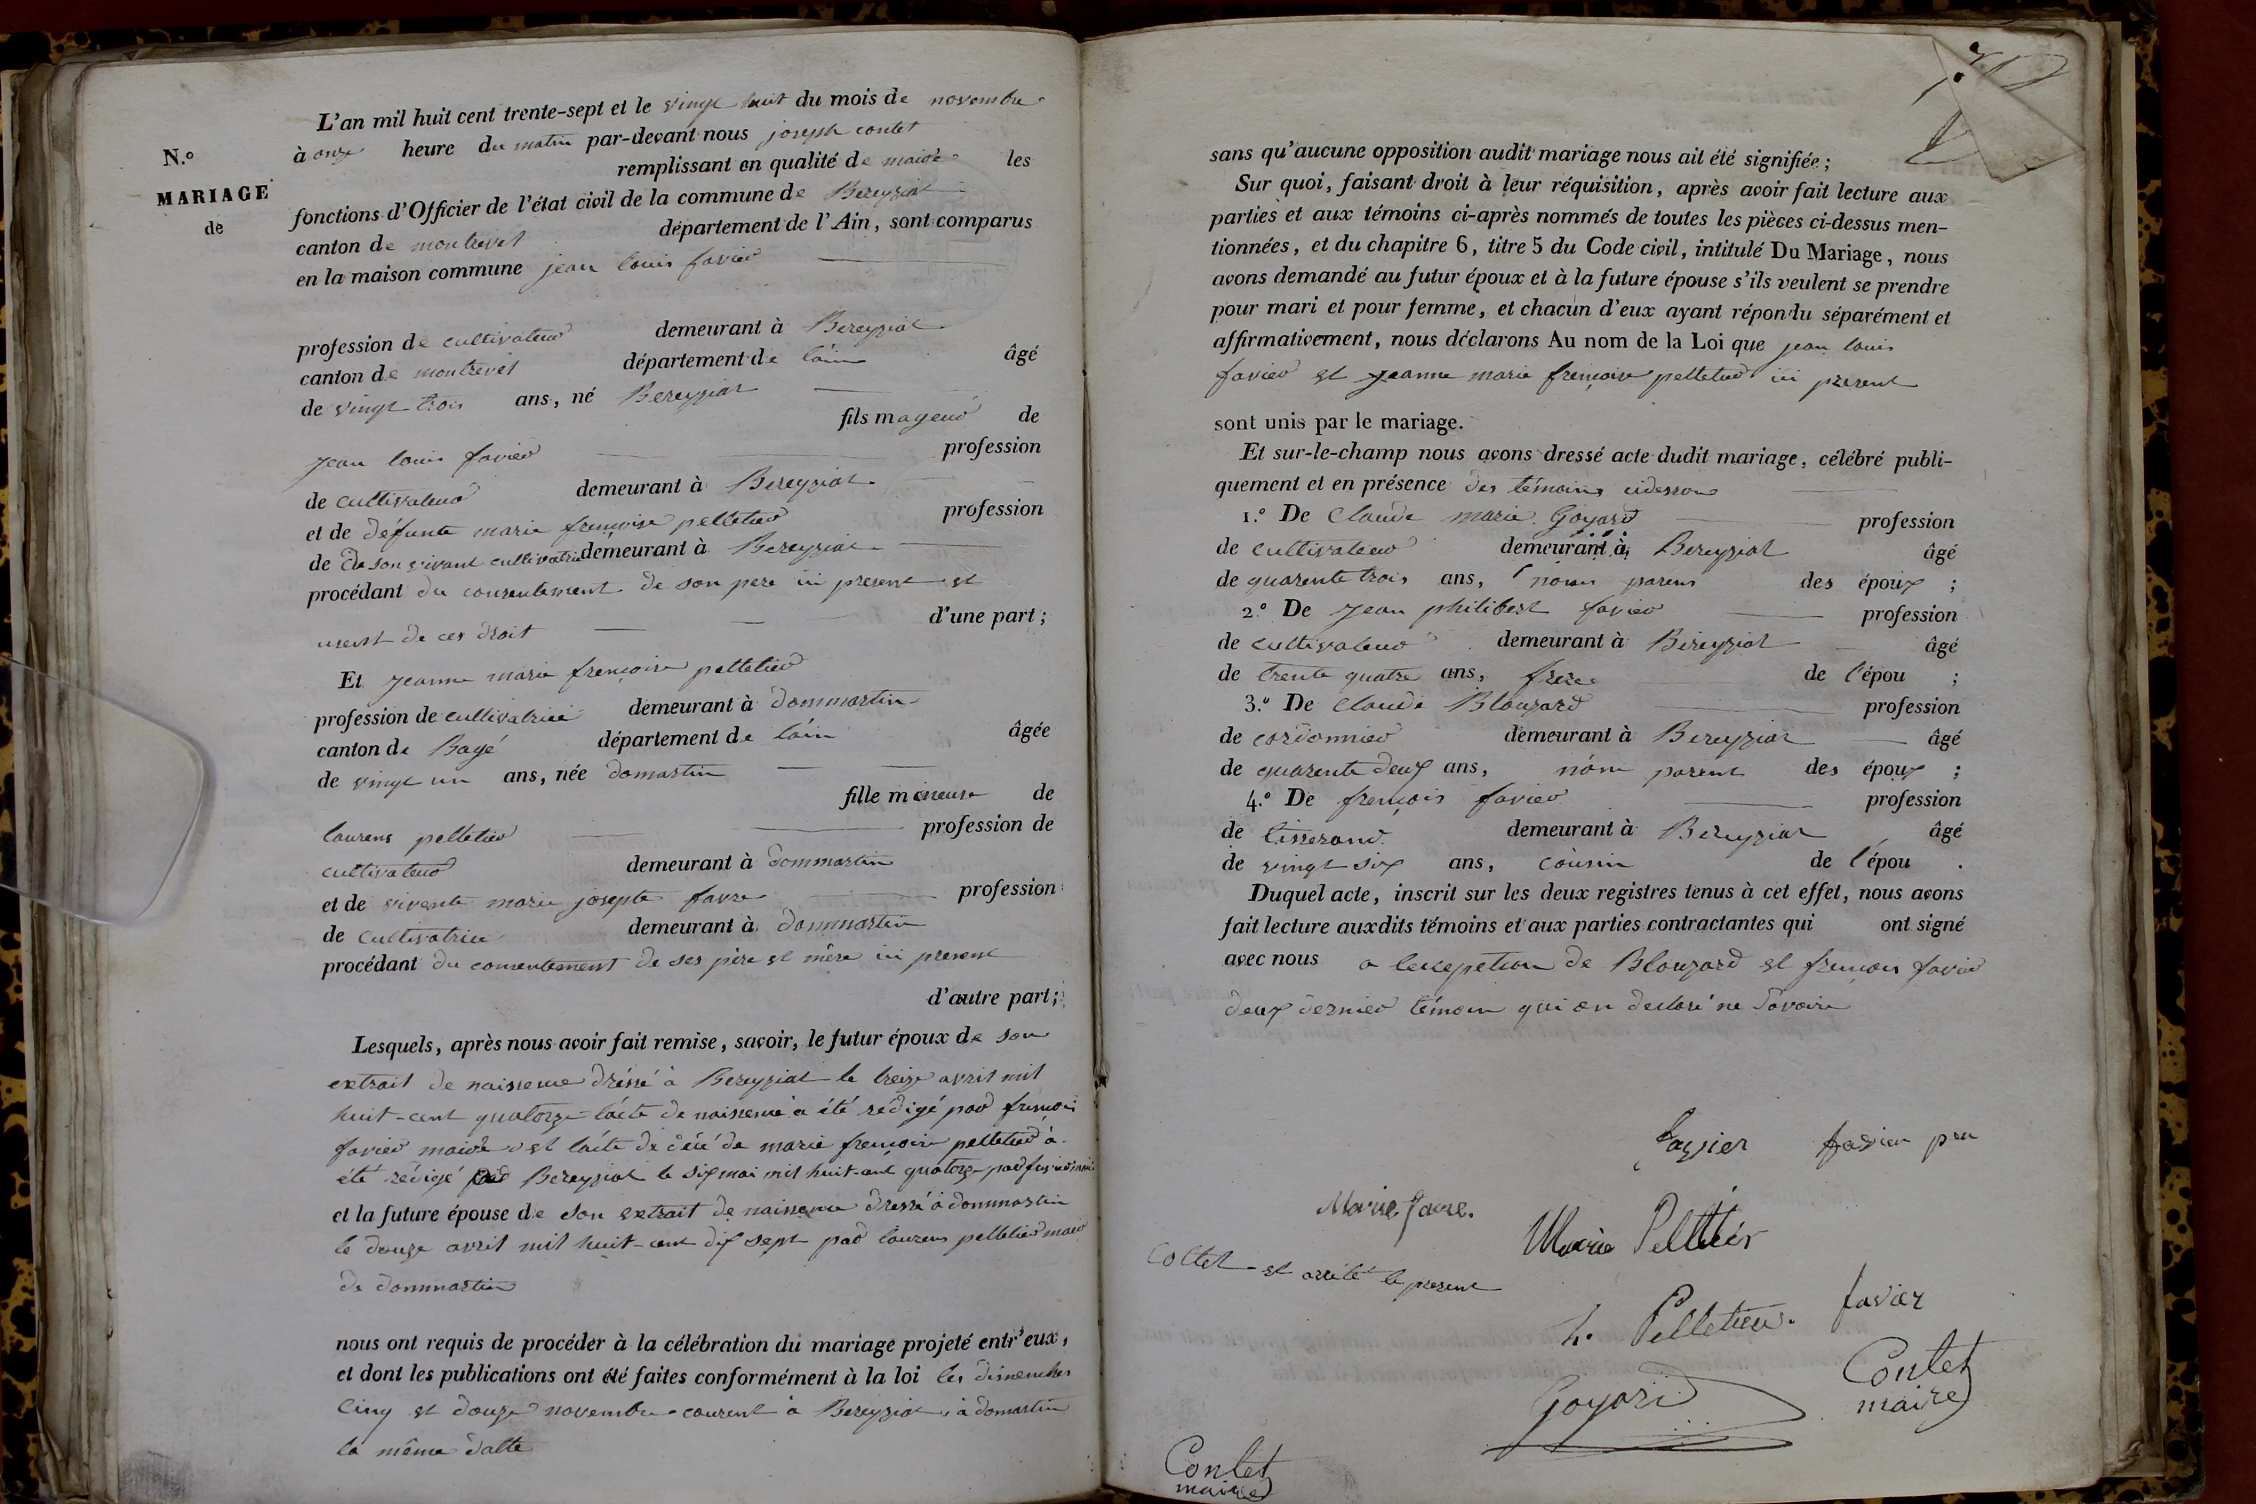 L'an mil huit cent trente-sept et le vingt huit du mois de novembre
à onze heure du matin par-devant nous joseph contet
remplissant en qualité de maire les
N.º
MARIAGE
de
fonctions d'Officier de l'état civil de la commune de Bereyziat
canton de montrevet département de l'Ain, sont comparus
en la maison commune jean louis favier
profession de cultivateur demeurant à Bereyziat
canton de montrevet département de láin âgé
de vingt trois ans, né Bereyziat
fils mageur de
jean louis favier profession
de cultivateur demeurant à Bereyziat
et de défunte marie françoise pelletier profession
de de son vivant cultivatrice demeurant à Bereyziat
procédant du consentement de son pere ici present et
usent de ces droit d'une part;
Et jeanne marie françoise pelletier
profession de cultivatrice demeurant à dommartin
canton de Bagé département de láin âgée
de vingt un ans, née domartin
fille mineure de
laurens pelletier profession de
cultivateur demeurant à dommartin
et de vivente marie josepte favre profession
de cultivatrice demeurant à dommartin
procédant du consentement de ses père et mère ici present
d'autre part;
Lesquels, après nous avoir fait remise, savoir, le futur époux de son
extrait de naissence dréssé à Bereyziat le treize avril mil
huit-cent quatorze lácte de naissence a été rédigé par françois
favier maire et lácte de décé de marie françoise pelletier à
été rédigé Bereyziat le six mai mil huit-cent quatorze par favier maire
et la future épouse de son extrait de naissence dressé à dommartin
le douze avril mil huit-cent dix sept par laurens pelletier maire
de dommartin
nous ont requis de procéder à la célébration du mariage projeté entr'eux,
et dont les publications ont été faites conformément à la loi les dimenches
cinq et douze novembre courent à Bereyziat, à domartin
la même datte
sans qu'aucune opposition audit mariage nous ait été signifiée;
Sur quoi, faisant droit à leur réquisition, après avoir fait lecture aux
parties et aux témoins ci-après nommés de toutes les pièces ci-dessus men-
tionnées, et du chapitre 6, titre 5 du Code civil, intitulé Du Mariage, nous
avons demandé au futur époux et à la future épouse s'ils veulent se prendre
pour mari et pour femme, et chacun d'eux ayant répondu séparément et
affirmativement, nous déclarons Au nom de la Loi que jean louis
favier et jeanne marie françoise pelletier ici present
sont unis par le mariage.
Et sur-le-champ nous avons dressé acte dudit mariage, célébré publi-
quement et en présence des témoins cidessous
1.º De Claude marie Goyard profession
de cultivateur demeurant à Bereyziat âgé
de quarente trois ans, nom parens des époux ;
2.º De jean philibert favier profession
de cultivateur demeurant à Bereyziat âgé
de trente quatre ans, frere de l'épou ;
3.º De Claude Blouzard profession
de cordonnier demeurant à Bereyziat âgé
de quarente deux ans, nóm parent des époux ;
4.º De françois favier profession
de tisserand demeurant à Bereyziat âgé
de vingt six ans, cousin de l'épou .
Duquel acte, inscrit sur les deux registres tenus à cet effet, nous avons
fait lecture auxdits témoins et aux parties contractantes qui ont signé
avec nous a lexcepetion de Blouzard et françois favier
deux dernier témoin qui on declaré ne savoir
favier favier pere
Marie favre.
Marie Pelletier
Collet et arrêté le present
L. Pelletier. favier
Contet
maire
Goyard
Contet
maire